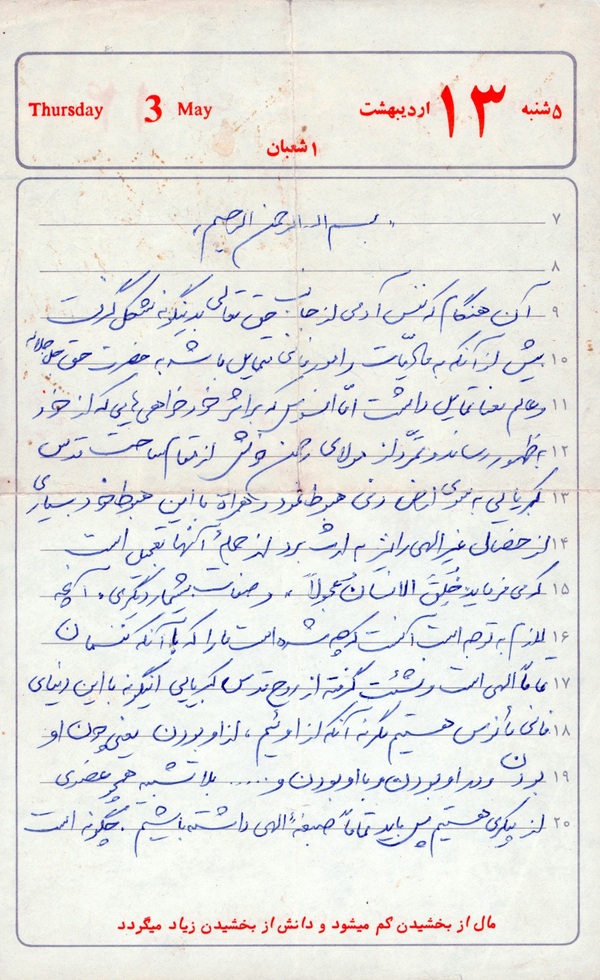 Thursday 3 May ۵شنبه ۱۳ اردیبهشت
۱ شعبان
۷ بسم الله الرحمن الرحیم
۸
۹ آن هنگام که نفس آدمی از جانب حق تعالی بدینگونه شکل گرفت
۱۰ بیش از آنکه به مادیّات و امور فانی متمایل باشد به حضرت حق جل جلاله
۱۱ و عالم بقا تمایل داشت امّا افسوس که بر اثر خودخواهی هایی که از خود
۱۲ به ظهور رساند و تمرّد از مولای خویش از مقام ساحت قدس
۱۳ کبریایی به سوی ارض دنی هبوط نمود و همراه با این هبوط خود بسیاری
۱۴ از خصائل غیر الهی را نیز به ارث برد از جمله آنها تعجیل است
۱۵ که می فرماید خُلِقَ الانسانُ عجولاً ، و صفات بیشمار دیگری . آنچه
۱۶ لازم به توجه است آنست که چه شده است ما را که با آنکه نفسمان
۱۷ تماماً الهی است و نشئت گرفته از روح قدس کبریایی اینگونه با این دنیای
۱۸ فانی مأنوس هستیم مگر نه آنکه از اوئیم ، از او بودن یعنی چون او
۱۹ بودن و در او بودن و با او بودن و .... بلا تشبیه همچو عضوی
۲۰ از پیکری هستیم پس باید تماماً صبغهٔ الهی داشته باشیم . چگونه است
مال از بخشیدن کم میشود و دانش از بخشیدن زیاد میگردد